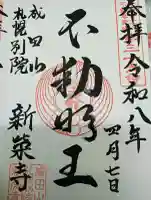 奉拝
令和八年
四月七日
不動明王
成田山
札幌別院
新栄寺